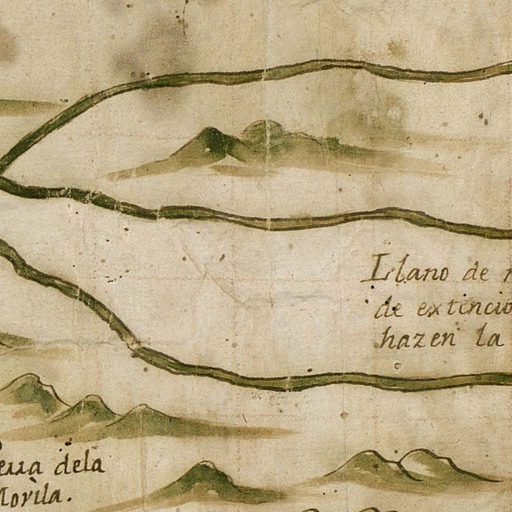 Llano de
de extinció
hazen la
dela
Morila.